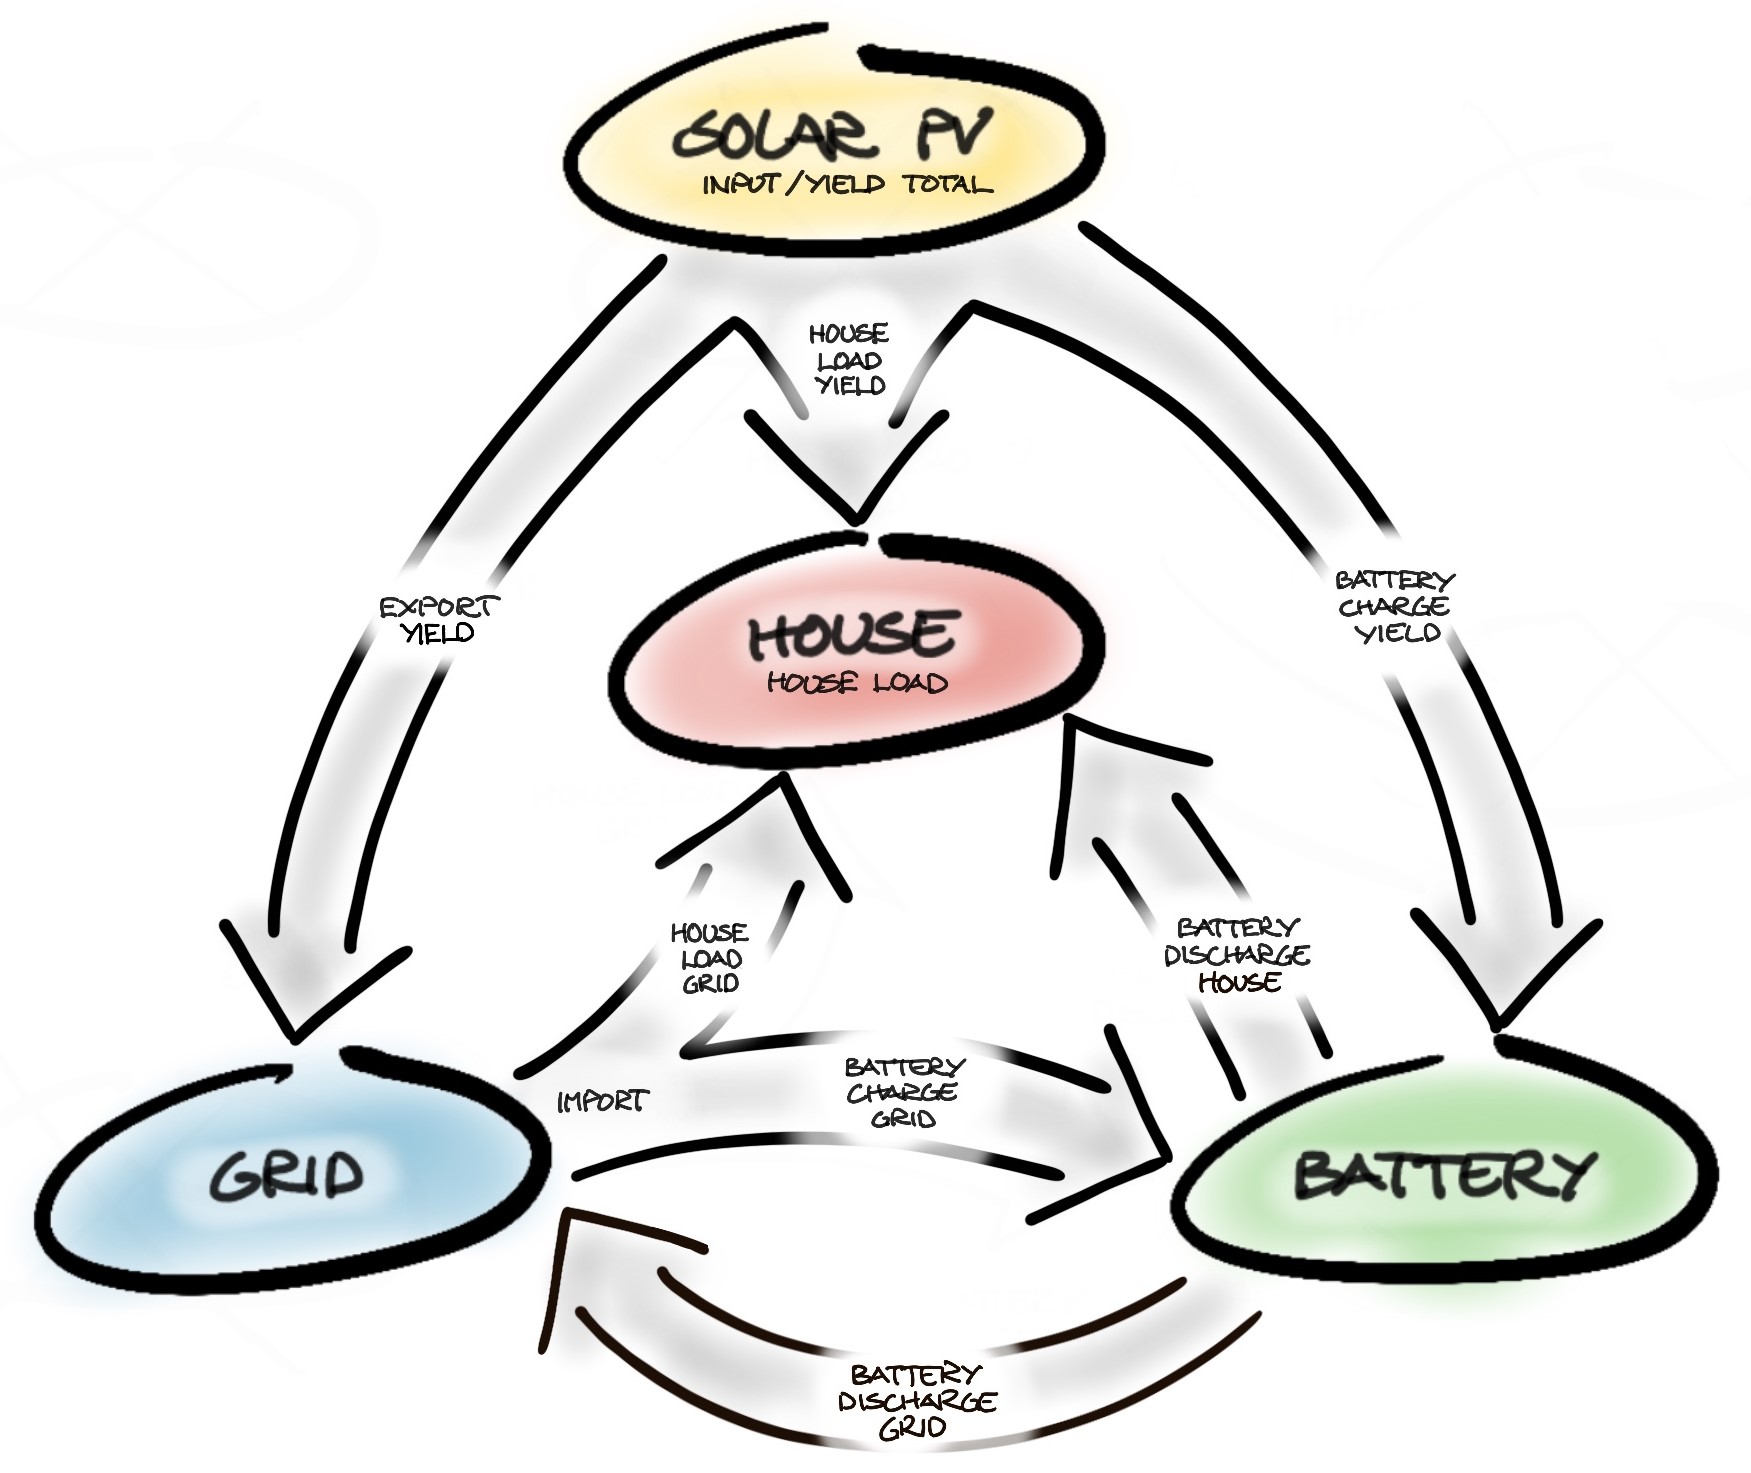 SOLAR PV
INPUT/YIELD TOTAL
HOUSE
LOAD
YIELD
EXPORT
YIELD
BATTERY
CHARGE
YIELD
HOUSE
HOUSE LOAD
HOUSE
LOAD
GRID
BATTERY
DISCHARGE
HOUSE
IMPORT
BATTERY
CHARGE
GRID
GRID
BATTERY
BATTERY
DISCHARGE
GRID